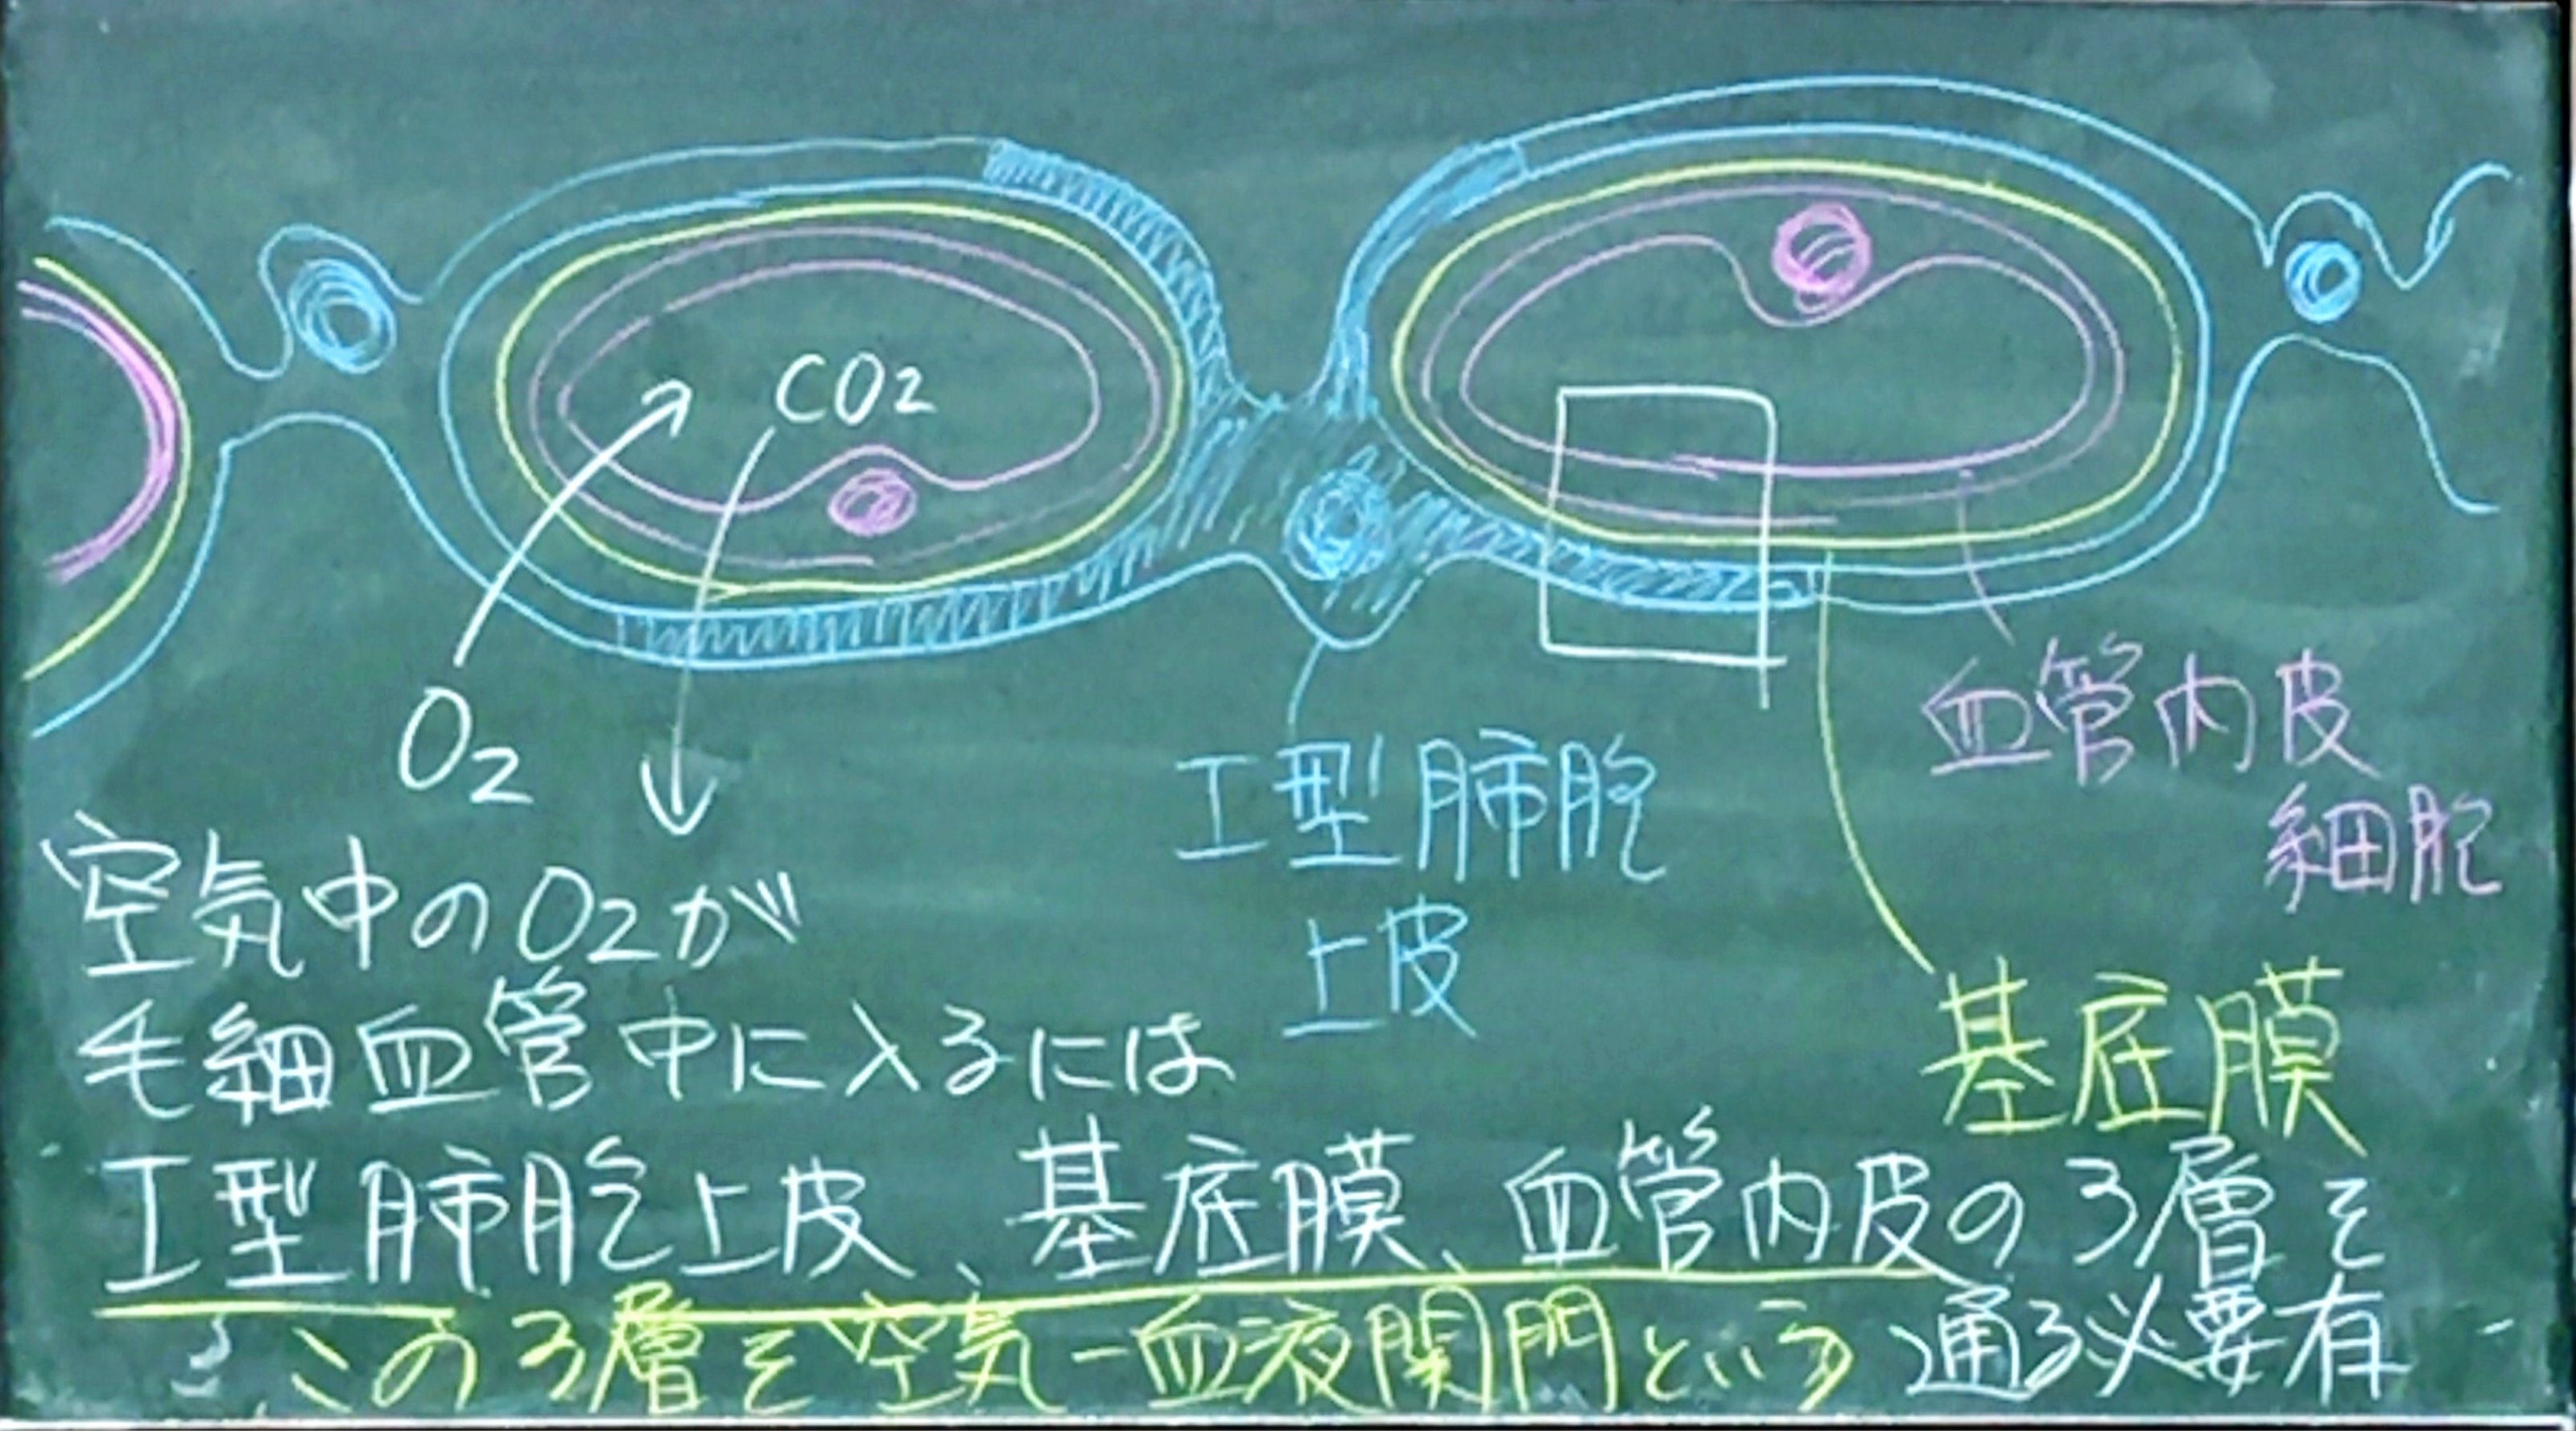 CO2
O2
I型肺胞
上皮
血管内皮
細胞
基底膜
空気中のO2が
毛細血管中に入るには
I型肺胞上皮、基底膜、血管内皮の3層を
通る必要有
この3層を空気-血液関門という